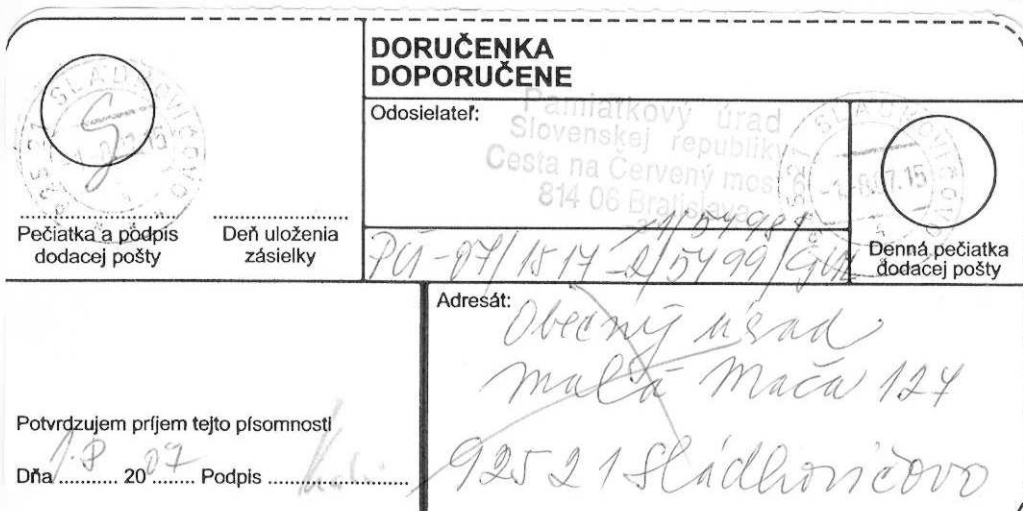 DORUČENKA
DOPORUČENE
Odosielateľ:
Pamiatkový úrad
Slovenskej republiky
Cesta na Červený most 6
814 06 Bratislava
Pečiatka a podpis
dodacej pošty
Deň uloženia
zásielky
PÚ-07/1817-2/5499/
Denná pečiatka
dodacej pošty
Adresát:
Obecný úrad
Malá Mača 124
925 21 Sládkovičovo
Potvrdzujem príjem tejto písomnosti
Dňa 1.8 2007 Podpis